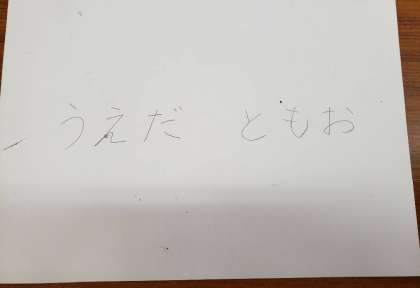 うえだ ともお